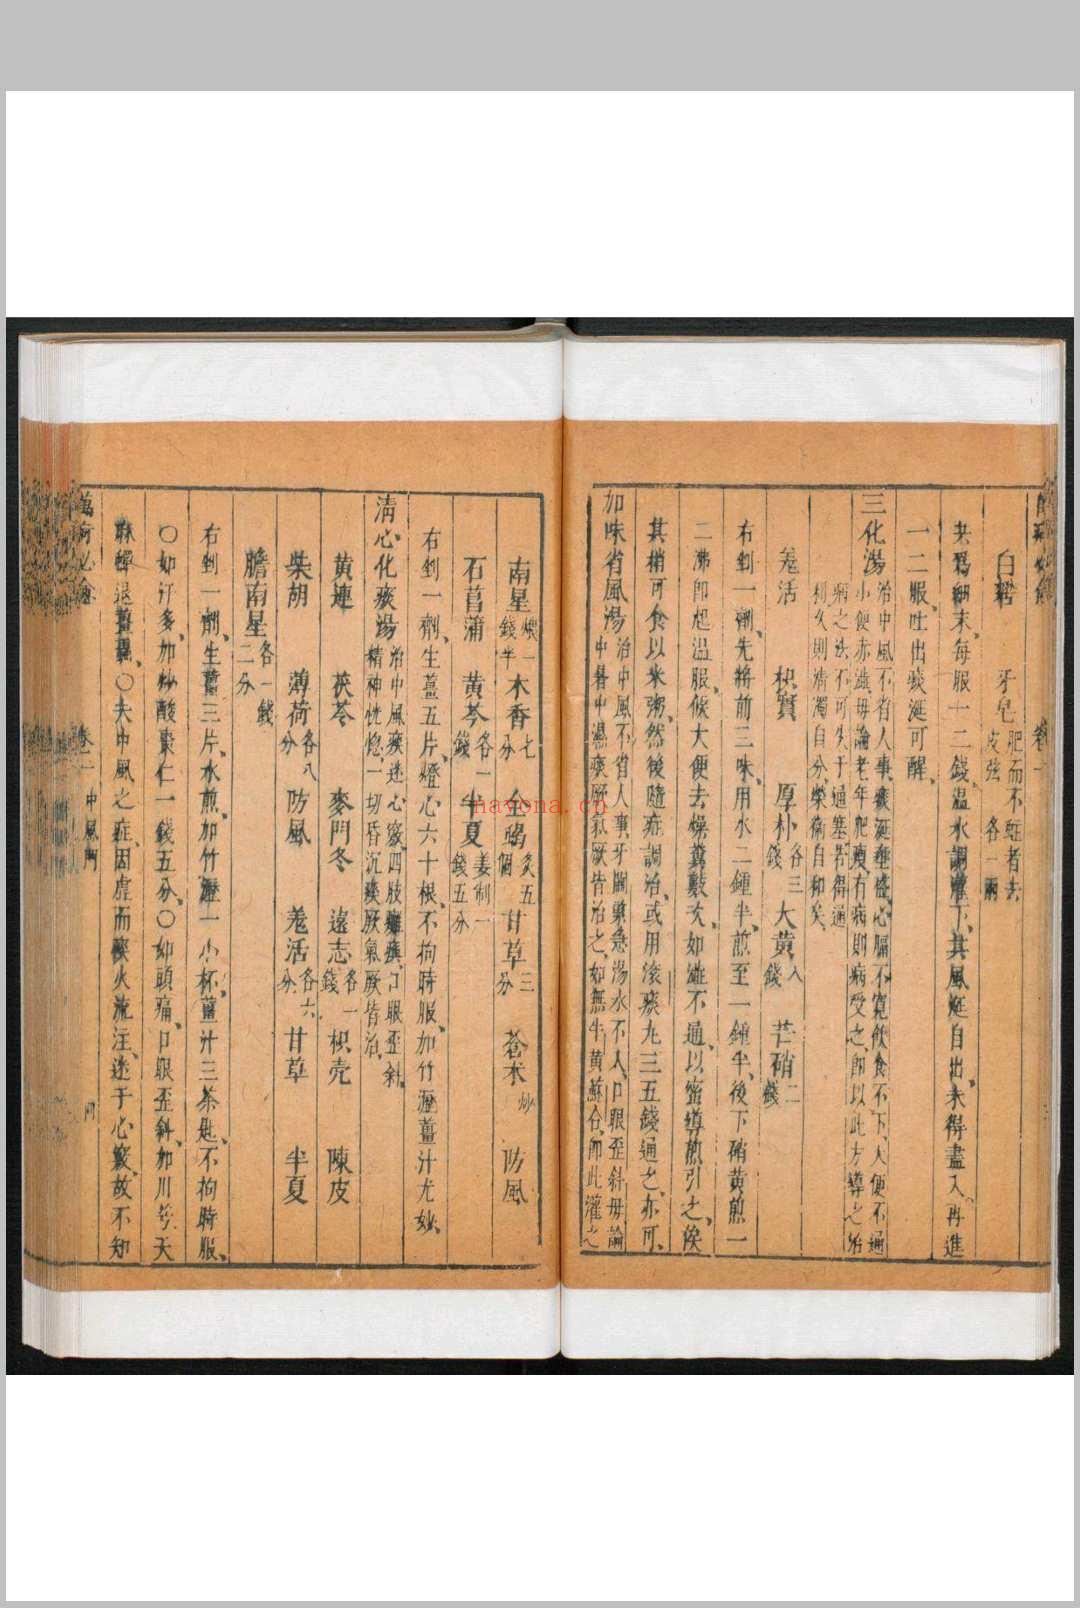 白礬 牙皂肥而不蛀者去皮弦各一兩
共爲細末、每服一二錢、溫水調灌下、其風涎自出、未得盡入、再進
一二服、吐出痰涎可醒、
三化湯治中風不省人事、痰涎壅盛、心膈不寬、飲食不下、大便不通
小便赤澁、毋論老年肥瘦有病則病受之、即以此方導之、治
病之法、不可失于通塞、若得通
利、久則淸濁自分、榮衞自和矣、
羗活 枳實 厚朴各三錢 大黃八錢 芒硝二錢
右剉一劑、先將前三味、用水二鍾半、煎至一鍾半、後下硝黃煎一
二沸、即起溫服、候大便去燥糞數次、如雖不通、以蜜導煎引之、俟
其稍可食、以米粥、然後隨症調治、或用滚痰丸三五錢通之、亦可、
加味省風湯治中風不省人事、牙關緊急、湯水不入、口眼歪斜、毋論
中暑中濕痰厥氣厥皆治之、如無牛黃蘇合、卽此灌之
南星煨一錢半 木香七分 全蝎炙五個 甘草三分 蒼朮炒 防風
石菖蒲 黃芩各一錢 半夏姜制一錢五分
右剉一劑、生薑五片、燈心六十根、不拘時服、加竹瀝薑汁尤妙、
淸心化痰湯治中風痰迷心竅、四肢癱瘓、口眼歪斜、
精神恍惚、一切昏沉痰厥氣厥皆治、
黃連 茯苓 麥門冬 遠志各一錢 枳壳 陳皮
柴胡 薄荷各八分 防風 羗活各六分 甘草 半夏
膽南星各一錢二分
右剉一劑、生薑三片、水煎、加竹瀝一小杯、薑汁三茶匙、不拘時服、
〇如汗多、加炒酸棗仁一錢五分、〇如頭痛、口眼歪斜、加川芎、天
麻、蟬退、薑蠶、〇夫中風之症、因虛而痰火流注、迷于心竅、故不知
卷二 中風門